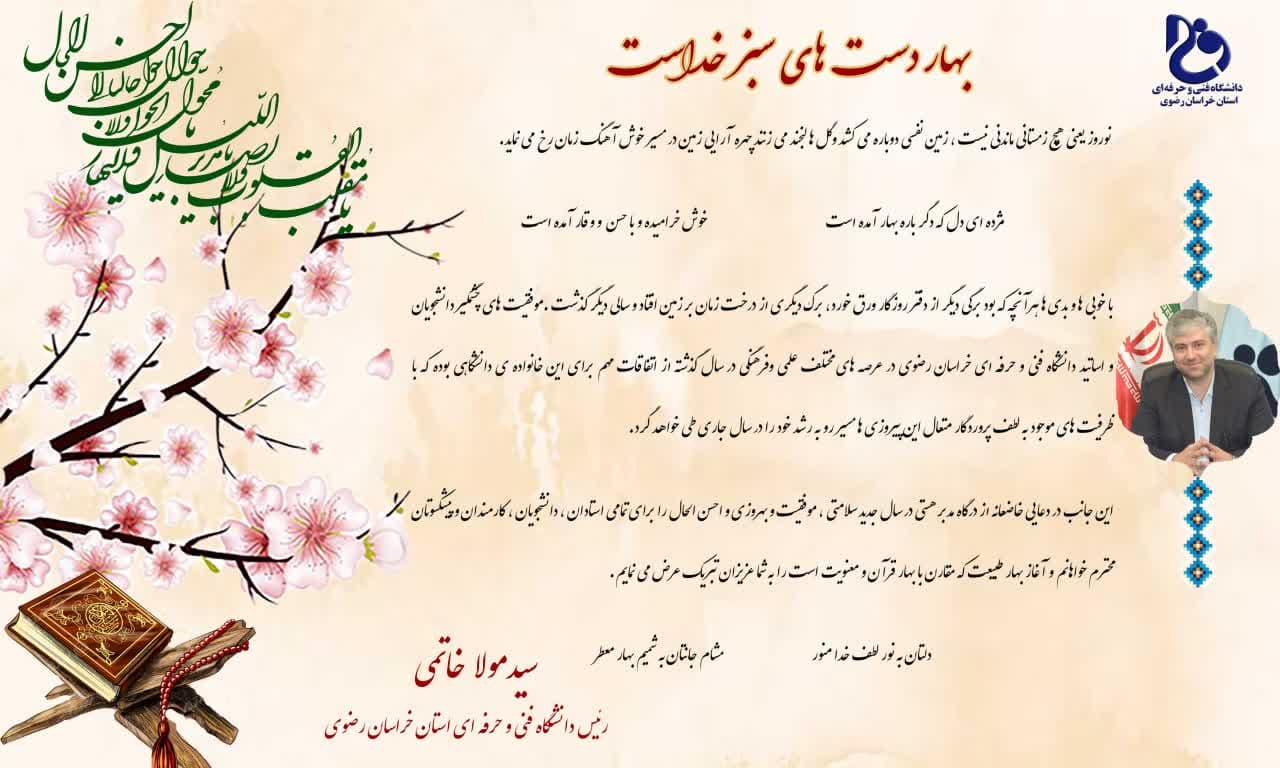 بهار دست های سبز خداست
دانشگاه فنی و حرفه ای
استان خراسان رضوی
یا مقلب القلوب و الابصار
یا مدبر اللیل و النهار
یا محول الحول و الاحوال
حول حالنا الی احسن الحال
نوروز یعنی هیچ زمستانی ماندنی نیست ، زمین نفسی دوباره می کشد و گل ها لبخند می زنند چهره آرایی زمین در مسیر خوش آهنگ زمان رخ می نماید.
مژده ای دل که دگر باره بهار آمده است    خوش خرامیده و با حسن و وقار آمده است
با خوبی ها و بدی ها هر آنچه که بود برگی دیگر از دفتر روزگار ورق خورد، برگ دیگری از درخت زمان بر زمین افتاد و سالی دیگر گذشت . موفقیت های چشمگیر دانشجویان
و اساتید دانشگاه فنی و حرفه ای خراسان رضوی در عرصه های مختلف علمی وفرهنگی در سال گذشته از اتفاقات مهم برای این خانواده ی دانشگاهی بوده که با
ظرفیت های موجود به لطف پروردگار متعال این پیروزی ها مسیر رو به رشد خود را در سال جاری طی خواهد کرد .
این جانب در دعایی خاضعانه از درگاه مدبر هستی در سال جدید سلامتی ، موفقیت و بهروزی و احسن الحال را برای تمامی استادان ، دانشجویان ، کارمندان و پیشکسوتان
محترم خواهانم و آغاز بهار طبیعت که مقارن با بهار قرآن و معنویت است را به شما عزیزان تبریک عرض می نمایم .
دلتان به نور لطف خدا منور    مشام جانتان به شمیم بهار معطر
سید مولا خاتمی
رئیس دانشگاه فنی و حرفه ای استان خراسان رضوی